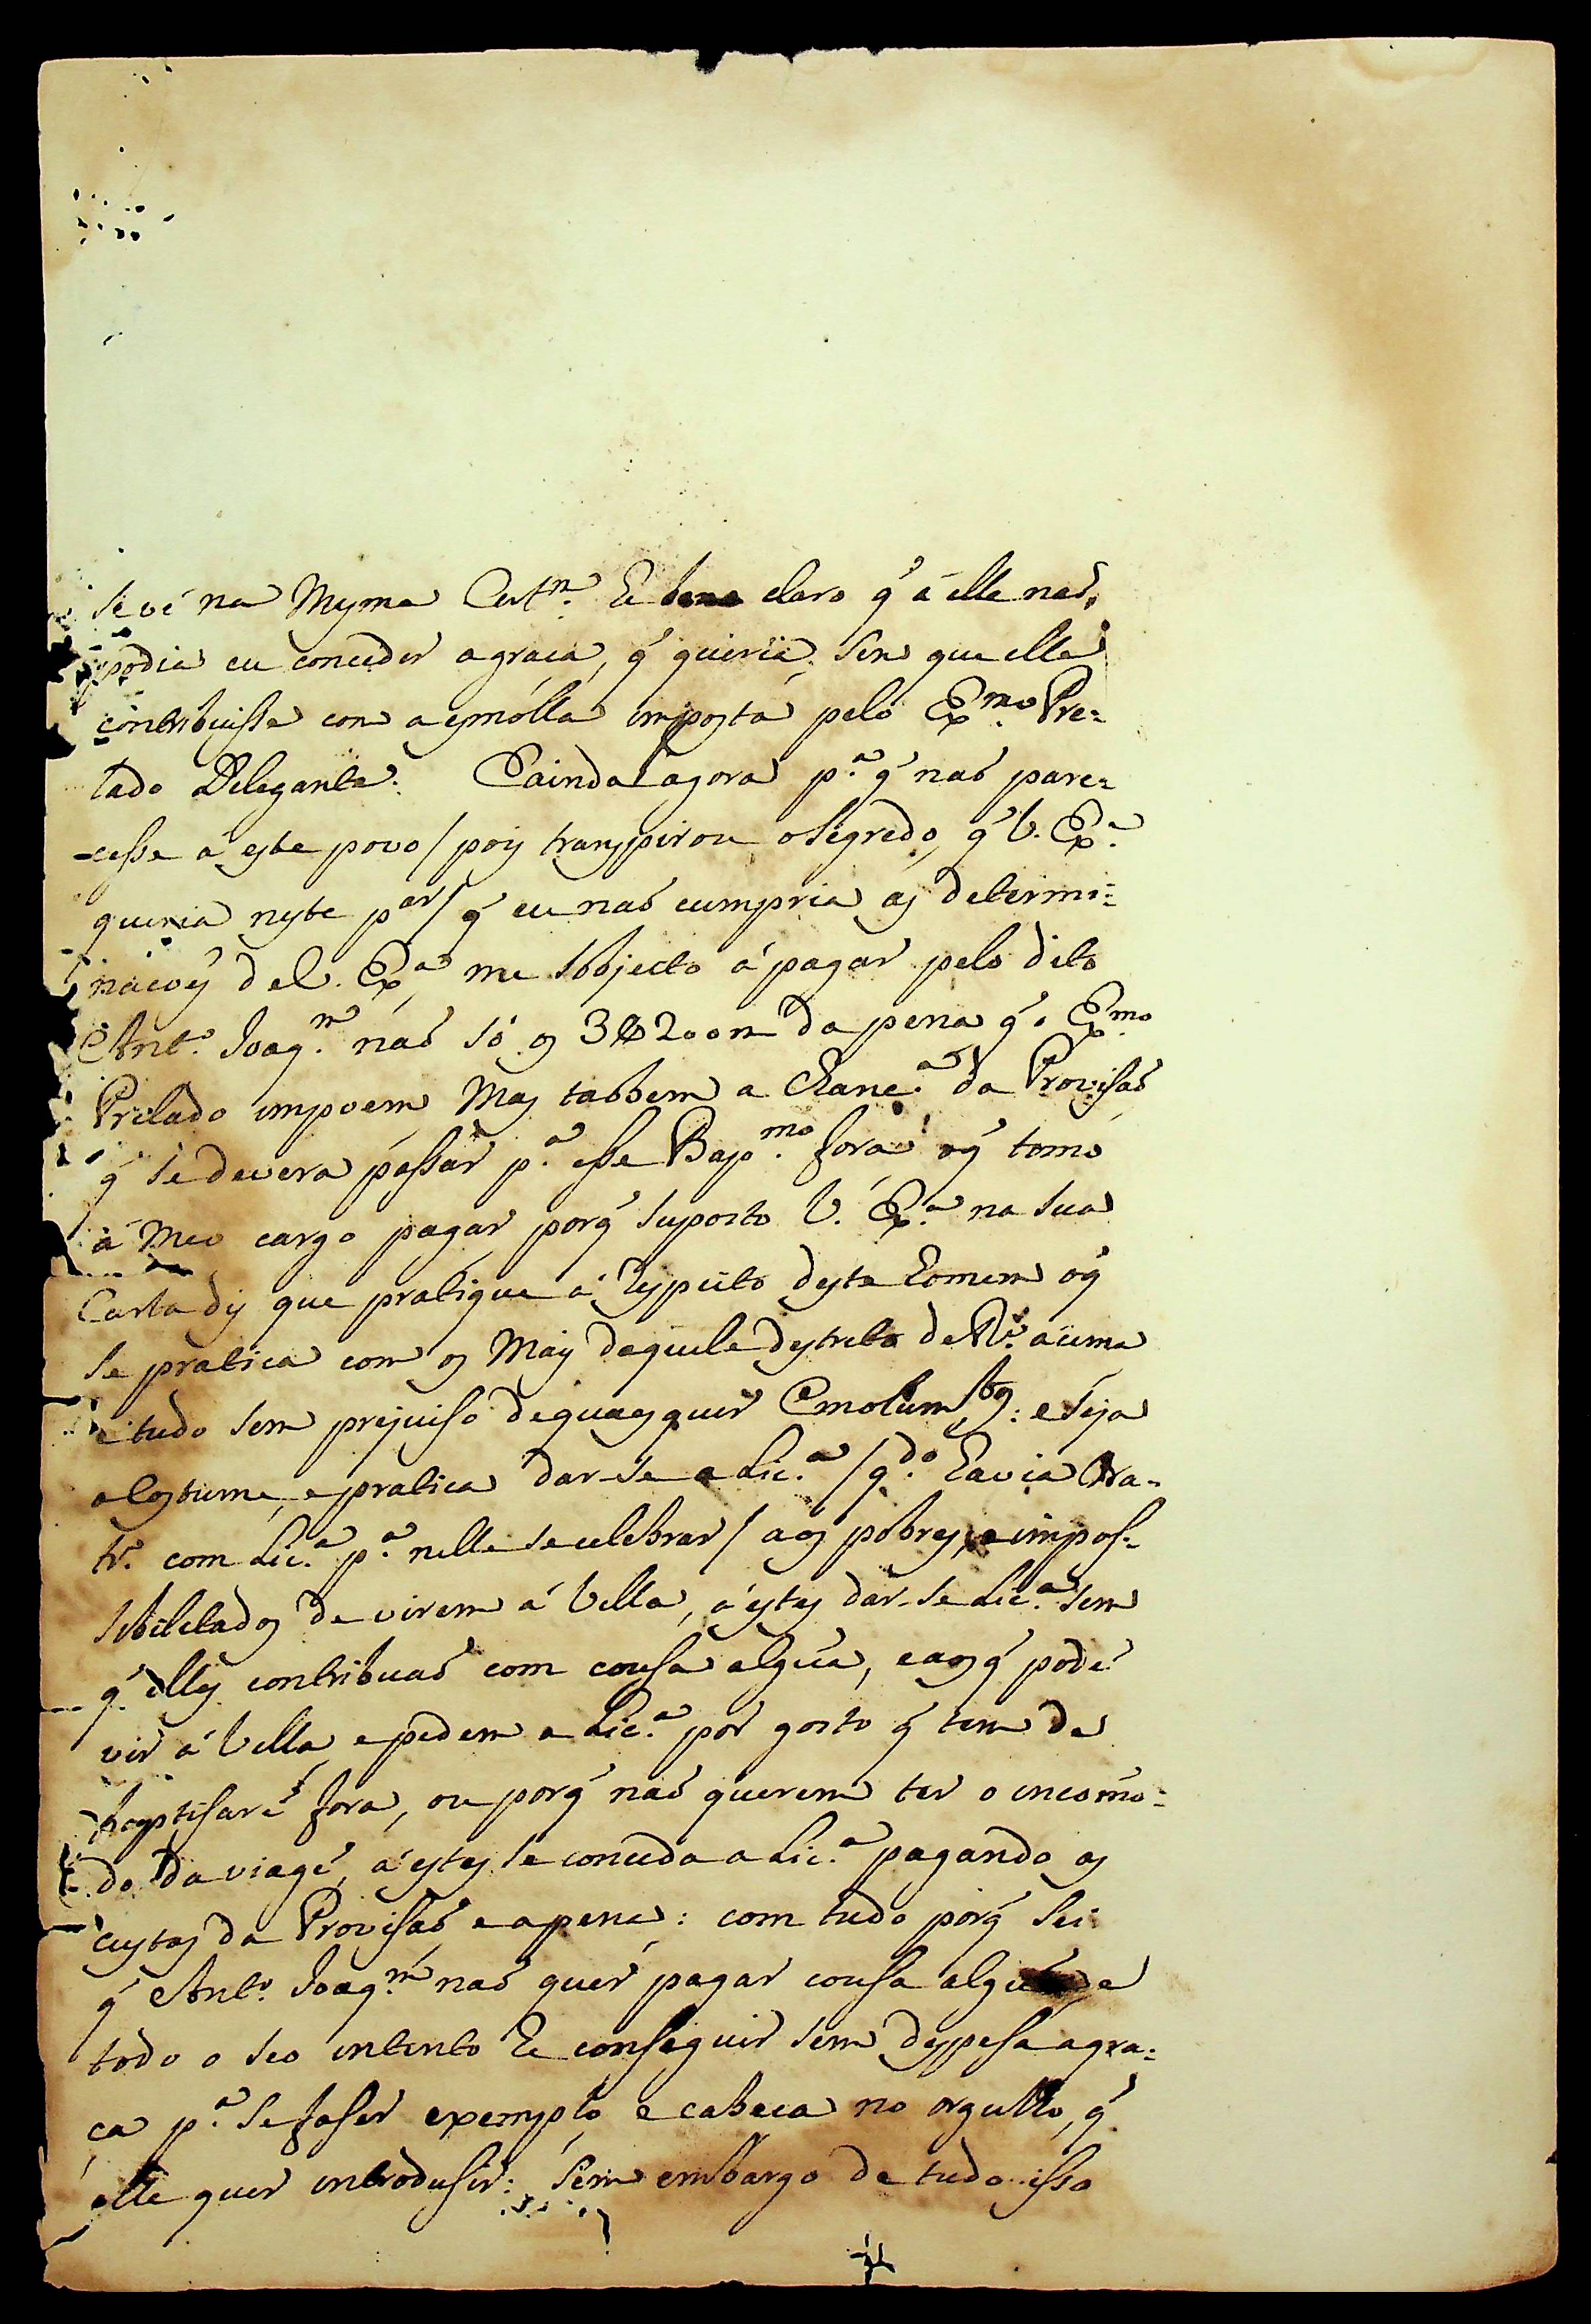 se vê na Mesma Certm. he bem claro q̃ á elle naõ
podia eu conceder a graça, q̃ queria, sem que elle
contribuisse com a esmolla imposta pelo Exmo. Pre-
lado Delegante. E ainda agora pa. q̃ naõ pare-
-cesse á este povo / pois transpirou o segredo, q̃ V. Exa.
queria neste par / q̃ eu naõ cumpria as determi-
naçoẽs de V. Exa., me sobjecto á pagar pelo dito
Anto. Joaqm. naõ só os 3$200 rs da pena q̃ o Exmo.
Prelado impoem, Mas tambem a Chanca. da Provisaõ
q̃ se devera passar pa. esse Bapmo. fora: o q̃ tomo
á Meo cargo pagar porq̃ suposto V. Exa. na sua
Carta dis que pratique á Respeito deste homem o q̃
se pratica com os Mais daquele destrito de Ro. acima
e tudo sem prejuiso de quaesquer Emolumtos.: e seja
o costume, e pratica dar-se a Lica. / qdo. havia Ora-
tro. com Lica. pa. nelle se celebrar / aos pobres, e impos-
sibilitados de virem á Villa, á estes dar-se Lica. sem
q̃ elles contribuaõ com cousa algũa, e aos q̃ podẽ
vir á Villa, e pedem a Lica. por gosto q̃ tem de
baptisarẽ fora, ou porq̃ naõ querem ter o incomo-
do da viagẽ, á estes se conceda a Lica. pagando as
custas da Provisaõ, e a pena: com tudo porq̃ sei
q̃ Anto. Joaqm. naõ quer pagar cousa algũa, e
todo o seo intento he conseguir sem despesa a gra-
ça pa. se faser exemplo, e cabeça no orgulho, q̃
elle quer introdusir: sem embargo de tudo isso